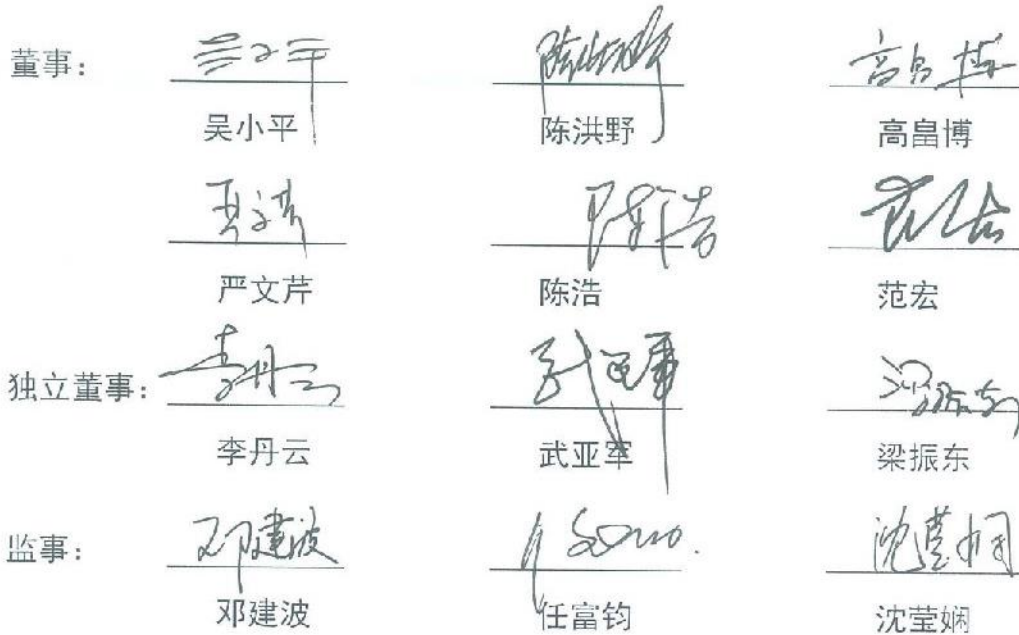 董事： 吴小平 陈洪野 高畠博
严文芹 陈浩 范宏
独立董事： 李丹云 武亚军 梁振东
监事： 邓建波 任富钧 沈莹娴